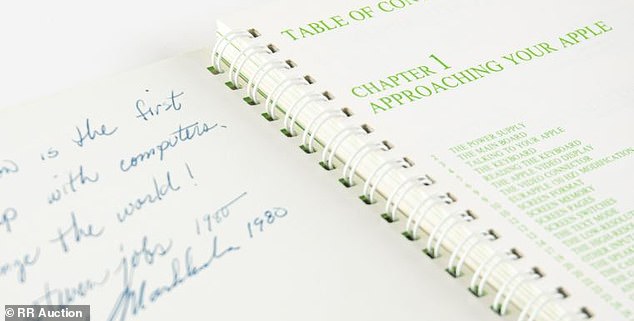 n is the first
p with computers.
nge the world!
teven jobs 1980
Markkula 1980
TABLE OF CON
CHAPTER 1
APPROACHING YOUR APPLE
THE POWER SUPPLY
THE MAIN BOARD
TALKING TO YOUR APPLE
THE KEYBOARD
READING THE KEYBOARD
THE APPLE VIDEO DISPLAY
MODIFICATION
SCREEN FORMAT
SCREEN MEMORY
SCREEN PAGES
SCREEN SWITCHES
THE TEXT MODE
© RR Auction